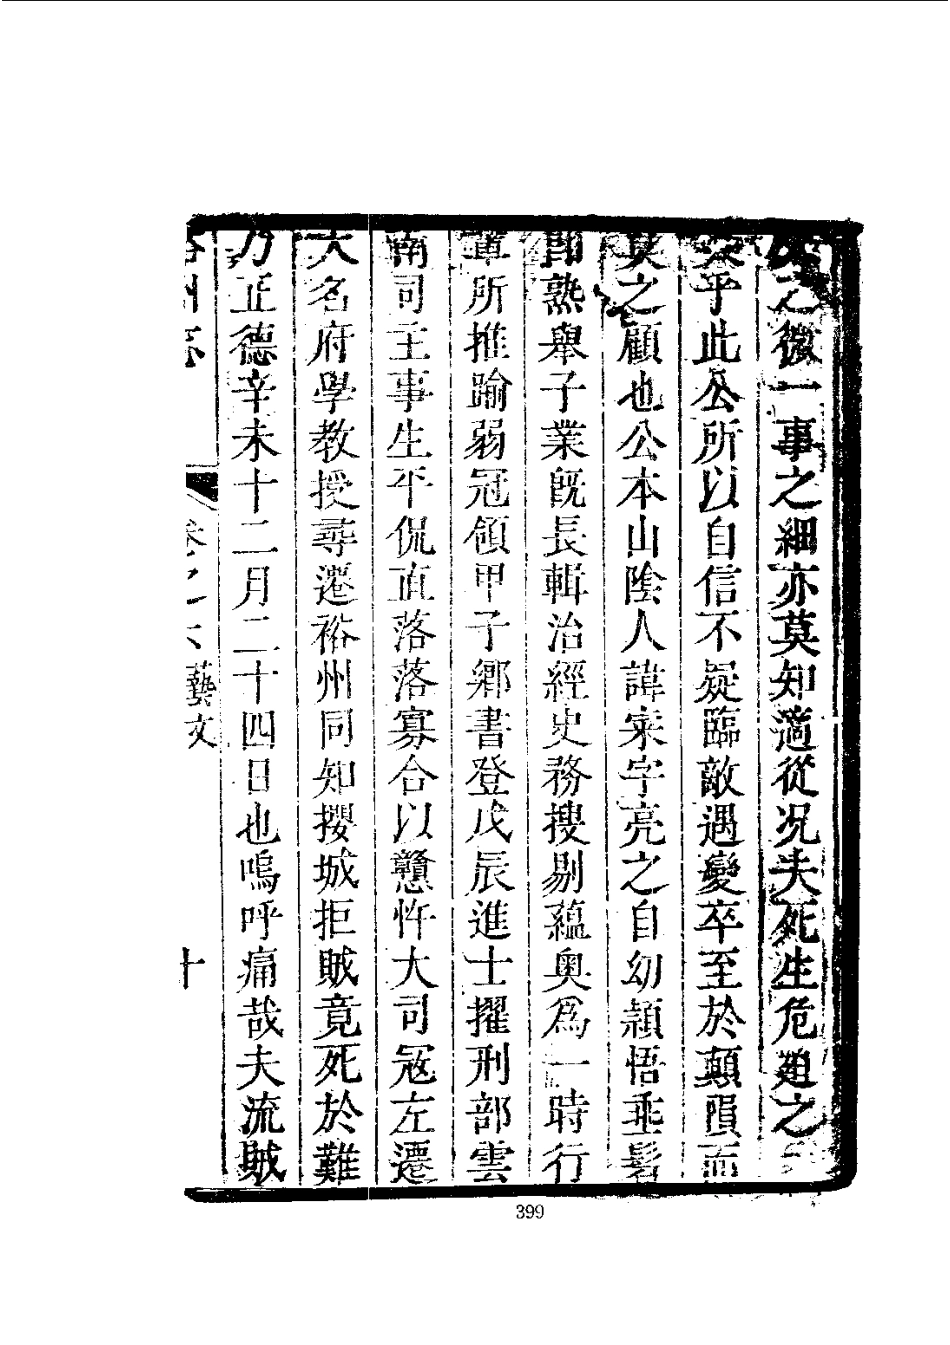 之微一事之細亦莫知適從况夫死生危廹之
乎此公所以自信不疑臨敵遇變卒至於顛隕而
莫之顧也公本山陰人諱寀字亮之自幼穎悟垂髫
即熟舉子業旣長輯治經史務搜剔蘊奥爲一時行
輩所推踰弱冠領甲子鄉書登戊辰進士擢刑部雲
南司主事生平侃直落落寡合以戇忤大司寇左遷
大名府學教授尋遷裕州同知攖城拒賊竟死於難
乃正德辛未十二月二十四日也嗚呼痛哉夫流賊
裕州志 卷之六 藝文 十
399